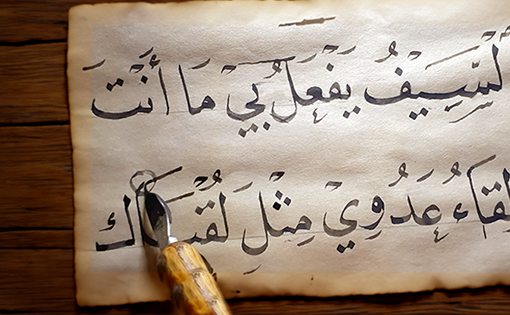 لسَّيِفُ يَفْعَلُ بيْ مَا أَنْتَ
لقاءُ عَدُوِيْ مِثْلِ لَقُيَاك